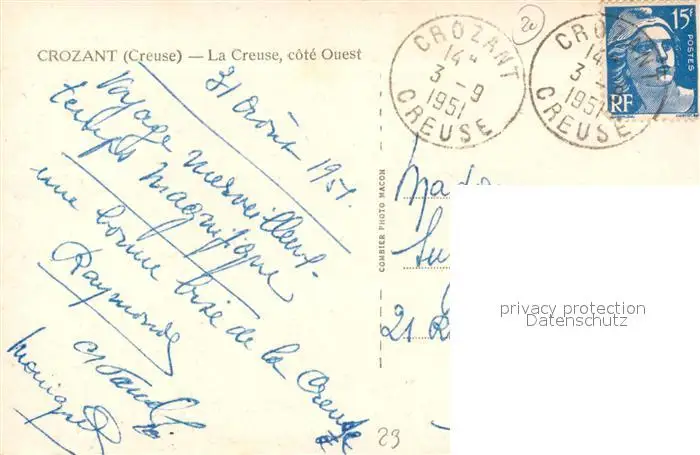 CROZANT (Creuse) — La Creuse, côté Ouest
31 Août 1951.
Voyage merveilleux
temps magnifique
une bonne bise de la Creuse
Raymonde
Monique
COMBIER PHOTO MACON
20
CROZANT
14 H
3 - 9
1951
CREUSE
CROZANT
14
3
1951
CREUSE
15F
POSTES
RF
Mada
21
privacy protection
Datenschutz
23